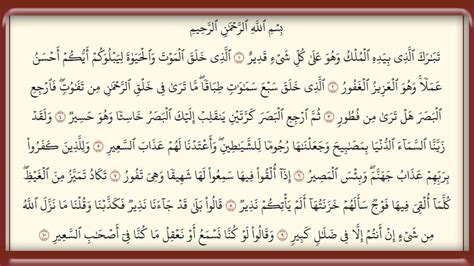 بِسْمِ اللَّهِ الرَّحْمَٰنِ الرَّحِيمِ
تَبَٰرَكَ ٱلَّذِى بِيَدِهِ ٱلْمُلْكُ وَهُوَ عَلَىٰ كُلِّ شَىْءٍ قَدِيرٌ ١ ٱلَّذِى خَلَقَ ٱلْمَوْتَ وَٱلْحَيَوٰةَ لِيَبْلُوَكُمْ أَيُّكُمْ أَحْسَنُ
عَمَلًا ۚ وَهُوَ ٱلْعَزِيزُ ٱلْغَفُورُ ٢ ٱلَّذِى خَلَقَ سَبْعَ سَمَٰوَٰتٍ طِبَاقًا ۖ مَّا تَرَىٰ فِى خَلْقِ ٱلرَّحْمَٰنِ مِن تَفَٰوُتٍ ۖ فَٱرْجِعِ
ٱلْبَصَرَ هَلْ تَرَىٰ مِن فُطُورٍ ٣ ثُمَّ ٱرْجِعِ ٱلْبَصَرَ كَرَّتَيْنِ يَنقَلِبْ إِلَيْكَ ٱلْبَصَرُ خَاسِئًا وَهُوَ حَسِيرٌ ٤ وَلَقَدْ
زَيَّنَّا ٱلسَّمَآءَ ٱلدُّنْيَا بِمَصَٰبِيحَ وَجَعَلْنَٰهَا رُجُومًا لِّلشَّيَٰطِينِ ۖ وَأَعْتَدْنَا لَهُمْ عَذَابَ ٱلسَّعِيرِ ٥ وَلِلَّذِينَ كَفَرُوا۟
بِرَبِّهِمْ عَذَابُ جَهَنَّمَ ۖ وَبِئْسَ ٱلْمَصِيرُ ٦ إِذَآ أُلْقُوا۟ فِيهَا سَمِعُوا۟ لَهَا شَهِيقًا وَهِىَ تَفُورُ ٧ تَكَادُ تَمَيَّزُ مِنَ ٱلْغَيْظِ ۖ
كُلَّمَآ أُلْقِىَ فِيهَا فَوْجٌ سَأَلَهُمْ خَزَنَتُهَآ أَلَمْ يَأْتِكُمْ نَذِيرٌ ٨ قَالُوا۟ بَلَىٰ قَدْ جَآءَنَا نَذِيرٌ فَكَذَّبْنَا وَقُلْنَا مَا نَزَّلَ ٱللَّهُ
مِن شَىْءٍ إِنْ أَنتُمْ إِلَّا فِى ضَلَٰلٍ كَبِيرٍ ٩ وَقَالُوا۟ لَوْ كُنَّا نَسْمَعُ أَوْ نَعْقِلُ مَا كُنَّا فِىٓ أَصْحَٰبِ ٱلسَّعِيرِ ١٠